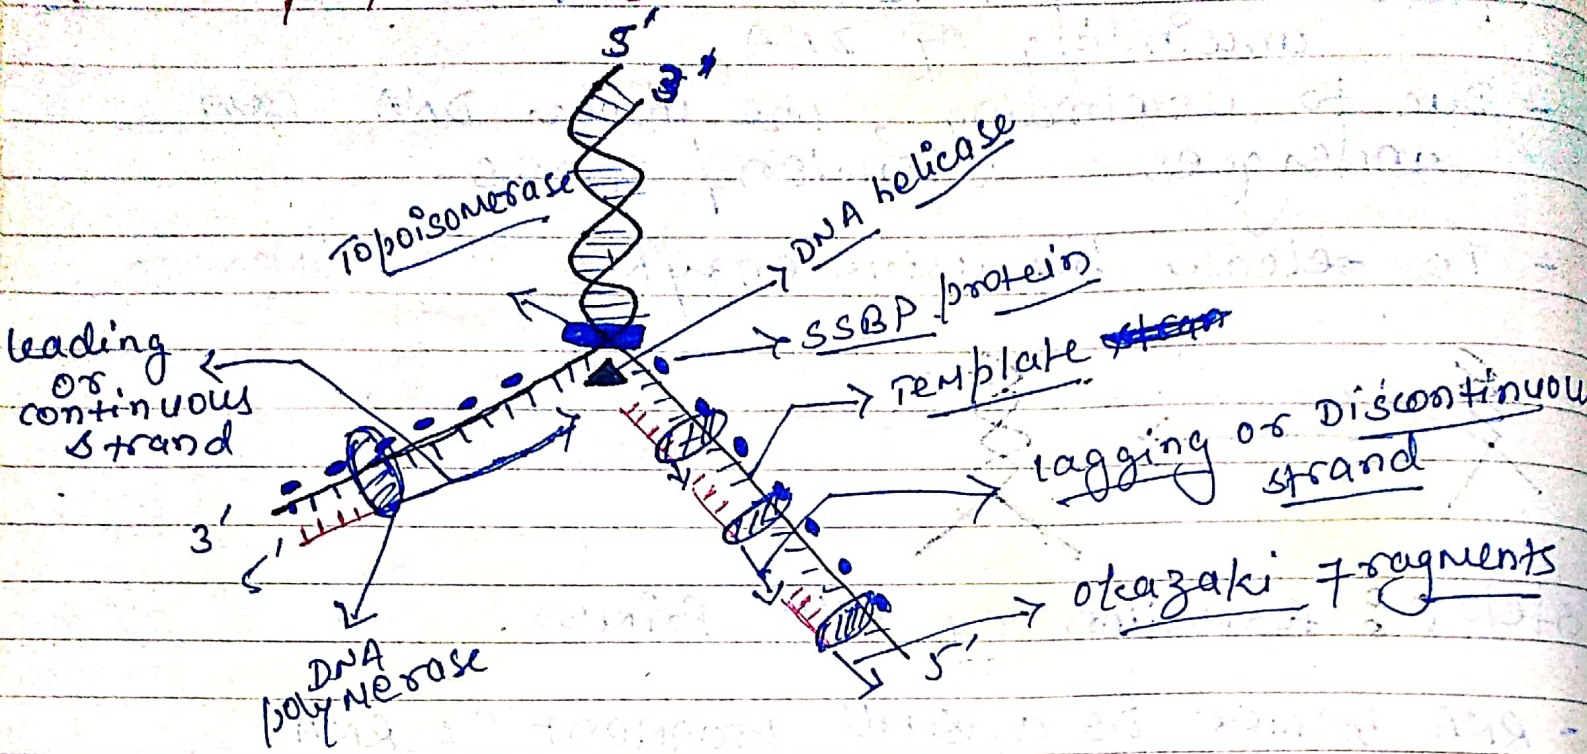 5'
3'
Topoisomerase
DNA helicase
SSBP protein
Template
leading
or
continuous
strand
lagging or Discontinuou
strand
3'
5'
okazaki Fragments
5'
DNA
polymerase